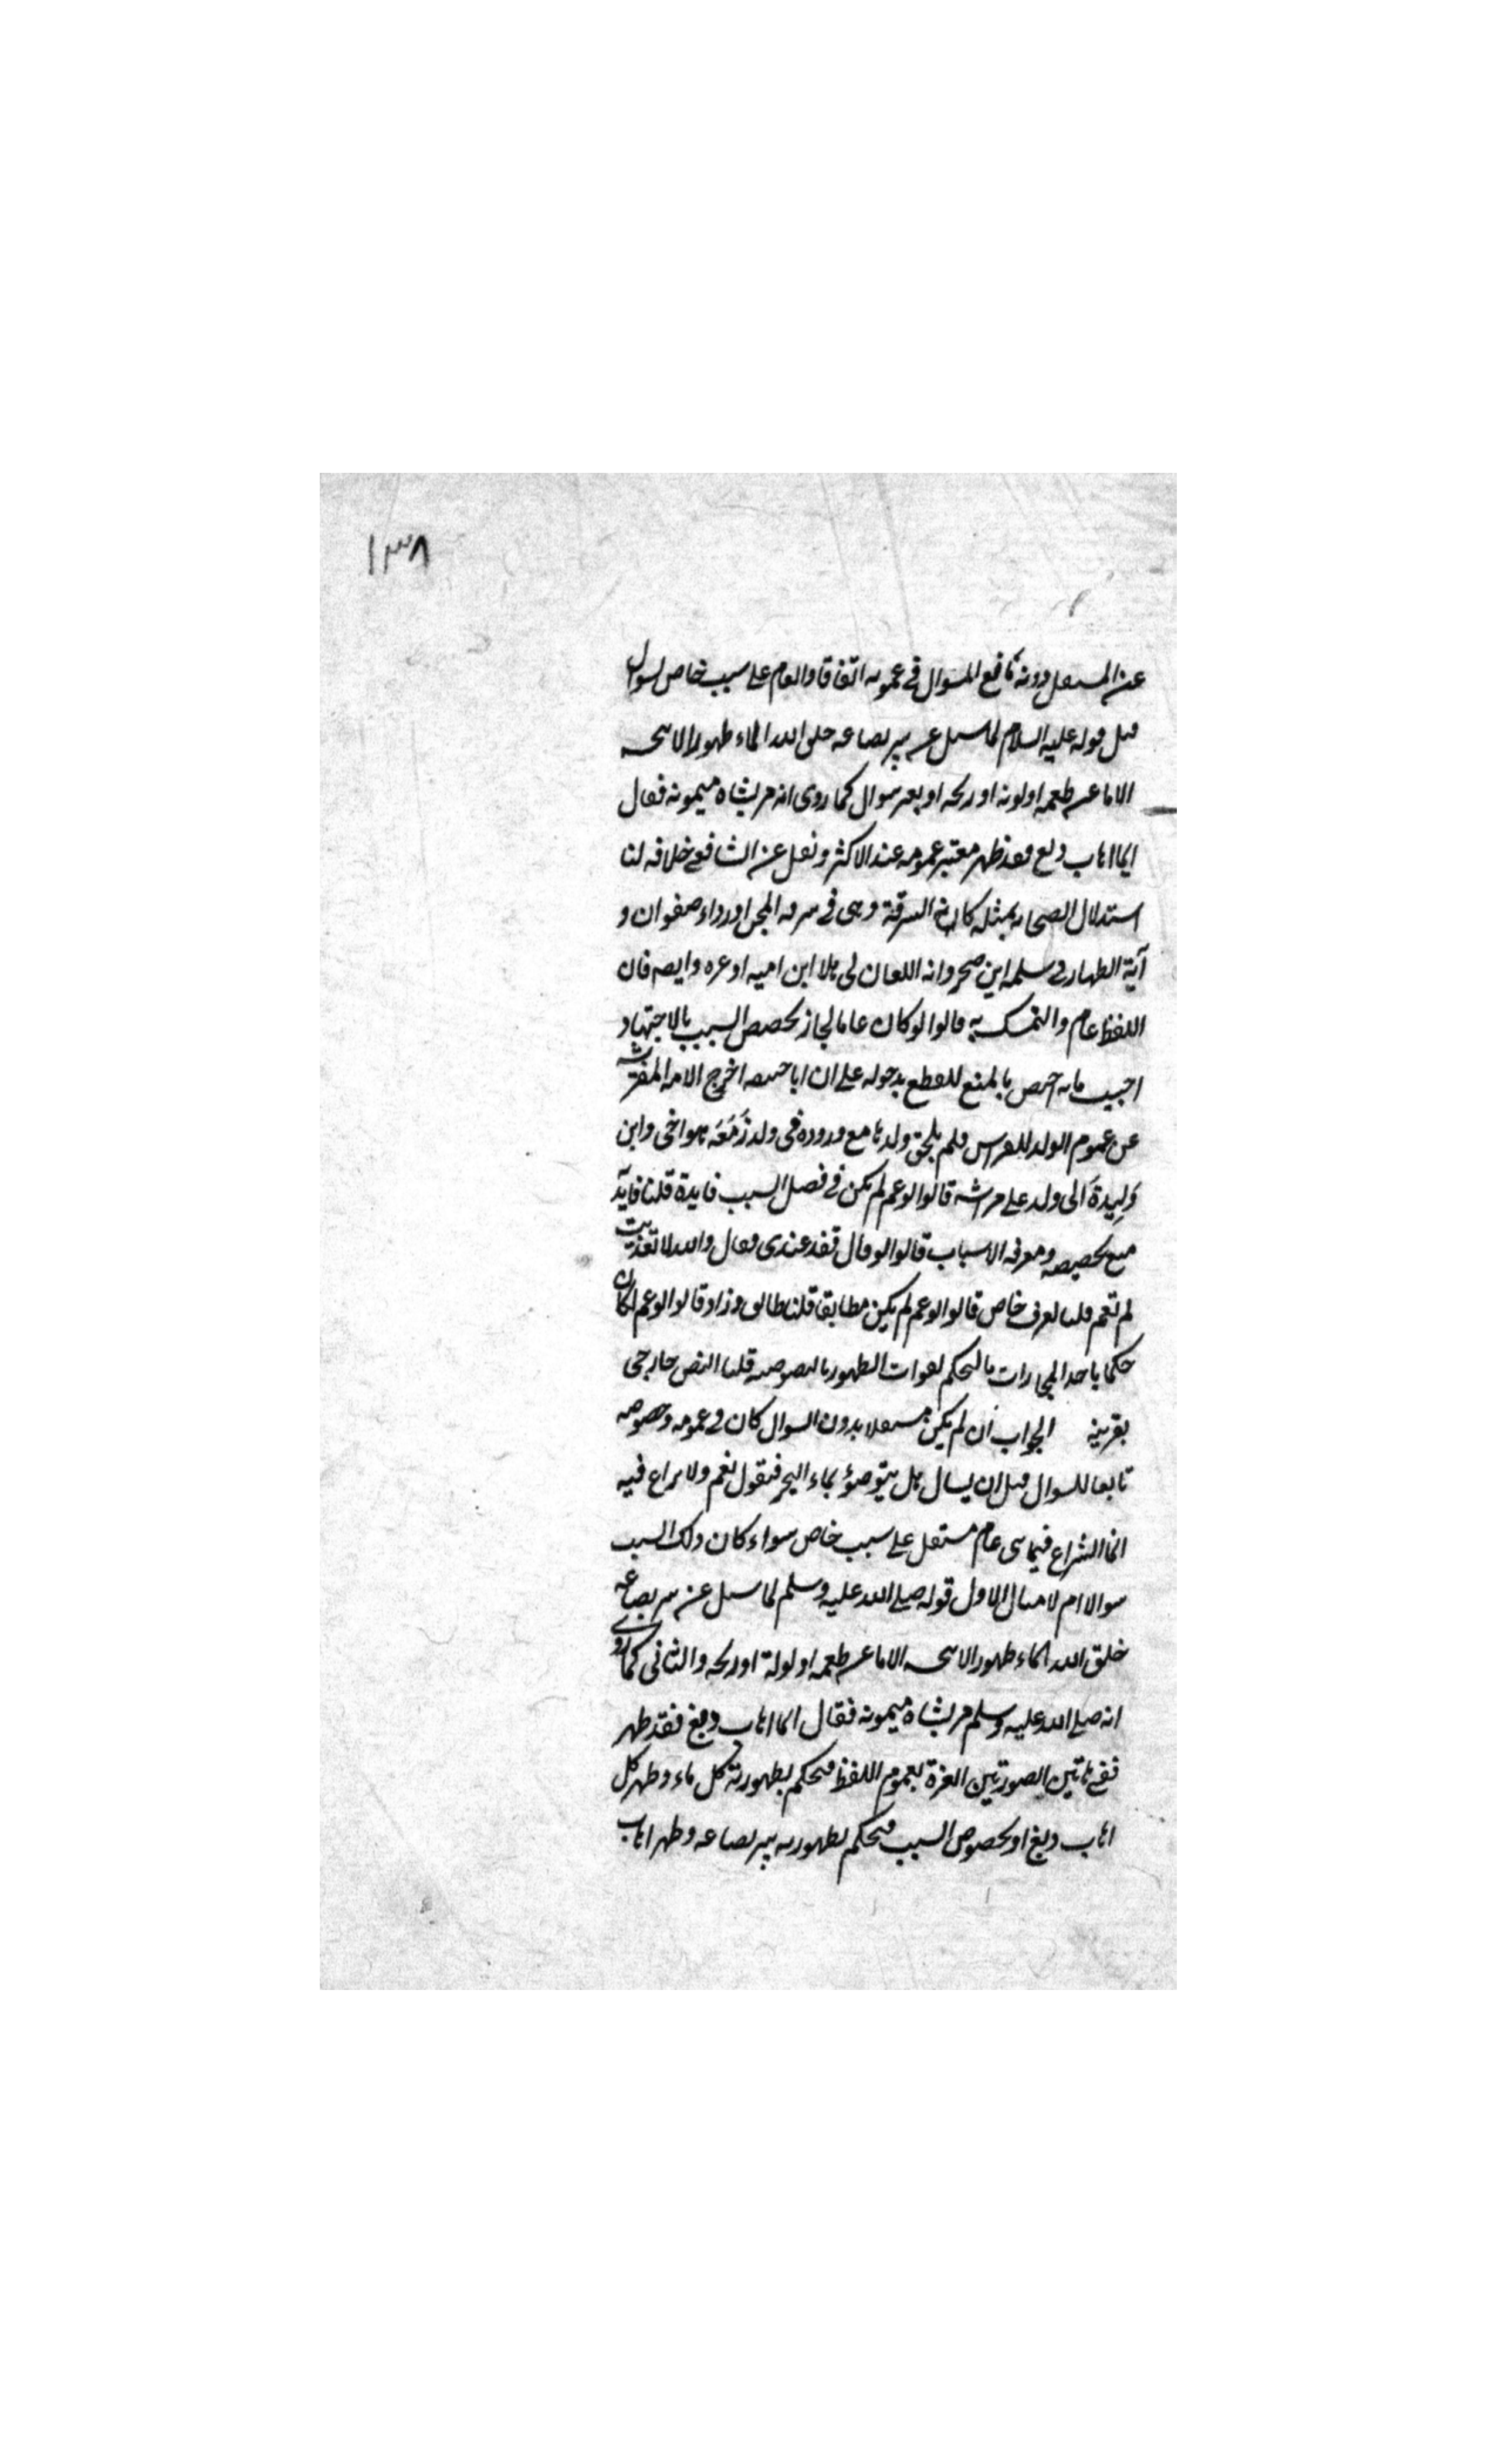 ١٣٨
عن المستقل دونه تابع للسوال في عمومه اتفاقا والعام على سبب خاص لسوال
مثل قوله عليه السلام لما سئل عن بير بضاعه خلق الله الماء طهورا لا ينجسه
الا ما غير طعمه او لونه او ريحه او بغير سوال كما روى انه مر بشاه ميمونه فقال
ايما اهاب دبغ فقد طهر معتبر عمومه عند الاكثر ونقل عن الشافعي خلافه لنا
استدلال الصحابه بمثله كآية السرقة وهى في سرقه المجن او رداء صفوان و
آية الظهار في سلمه ابن صخر وآيه اللعان في هلال ابن اميه او غيره وايضه فان
اللفظ عام والتمسك به قالوا لو كان عاما لجاز تخصيص السبب بالاجتهاد
اجيب بانه اختص بالمنع للقطع بدخوله على ان ابا حنيفه اخرج الامه المفترشه
عن عموم الولد للفراش فلم يلحق ولدها مع وروده فى ولد زَمَعَه هو اخى وابن
وَلِيدةَ ابى ولد على فراشه قالوا لو عم لم يكن في فصل السبب فايدة قلنا فايدته
منع تخصيصه ومعرفه الاسباب قالوا لو قال تغد عندى فقال والله لا تغديت
لم تعم قلنا لعرف خاص قالوا لو عم لم يكن مطابقا قلنا طابق وزاد قالوا لو عم لكان
حكما باحد المجازات بالتحكم لفوات الظهور بالنصوصيه قلنا النص خارجى
بقرينه الجواب ان لم يكن مستقلا بدون السوال كان في عمومه وخصوصه
تابعا للسوال مثل ان يسال هل يتوضؤ بماء البحر فنقول نعم ولا نزاع فيه
انما النزاع فيما بنى عام مستقل على سبب خاص سواء كان ذلك السبب
سوالا ام لا مثال الاول قوله صلى الله عليه وسلم لما سئل عن بير بضاعه
خلق الله الماء طهورا لا ينجسه الا ما غير طعمه او لونه او ريحه والثانى كما روى
انه صلى الله عليه وسلم مر بشاه ميمونه فقال ايما اهاب دبغ فقد طهر
ففي هاتين الصورتين العبرة بعموم اللفظ فيحكم بطهورية كل ماء وطهر كل
اهاب دبغ او بخصوص السبب فيحكم بطهوريه بير بضاعه وطهر اهاب